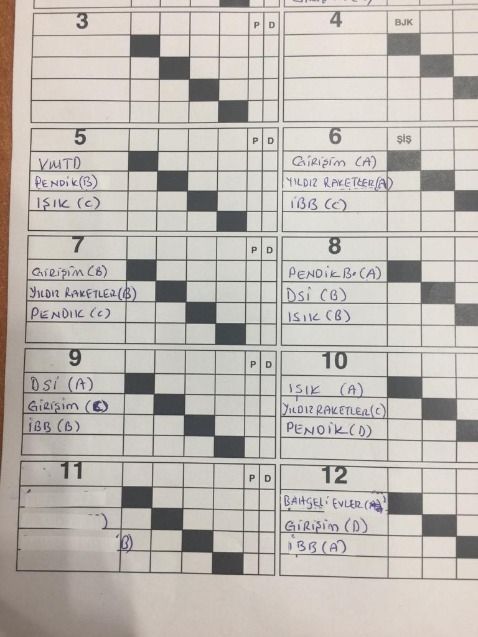 3 P D
4 BJK
5 P D
VMTD
PENDİK(B)
IŞIK (C)
6 ŞİŞ
GİRİŞİM (A)
YILDIZ RAKETLER(A)
İBB (C)
7 P D
GİRİŞİM (B)
YILDIZ RAKETLER(B)
PENDIK (C)
8
PENDİK B. (A)
DSİ (B)
ISIK (B)
9 P D
DSİ (A)
GİRİŞİM (C)
İBB (B)
10
IŞIK (A)
YILDIZ RAKETLER(C)
PENDİK (D)
11 P D
)
B)
12
BAHÇELİ EVLER
GİRİŞİM (D)
İBB (A)